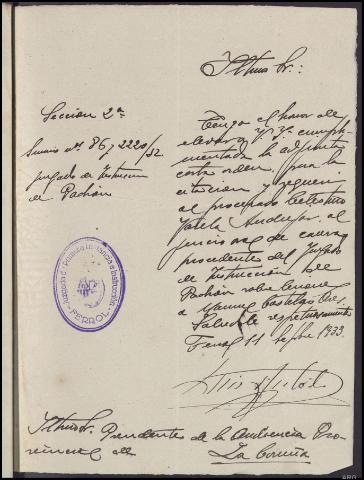 Iltmo Sr.:
Sección 2ª
Sumario nº 86 y 2220/32
Juzgado de Instrucción
de Padrón
Tengo el honor de
elevar a V.I. cumpli-
mentada la adjunta
carta orden, para la
citación y
al procesado Celestino
Varela al
juicio oral de causa
procedente del Juzgado
de Instrucción de
Padrón sobre
a Manuel Castelao
Saludole respetuosamente
Ferrol 11 Sepbre 1933
Juzgado de Primera Instancia e Instrucción
FERROL
Iltmo Sr. Presidente de la Audiencia Pro-
vincial de
La Coruña